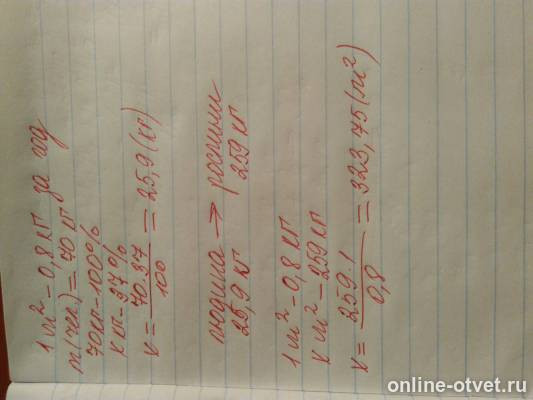 1 м² - 0,8 кг за год
m(чел) = 70 кг
70кг - 100%
х кг - 37%
х = 70·37 / 100 = 25,9 (кг)
людина → рослини
25,9 кг 259 кг
1 м² - 0,8 кг
х м² - 259 кг
х = 259·1 / 0,8 = 323,75 (м²)
online-otvet.ru